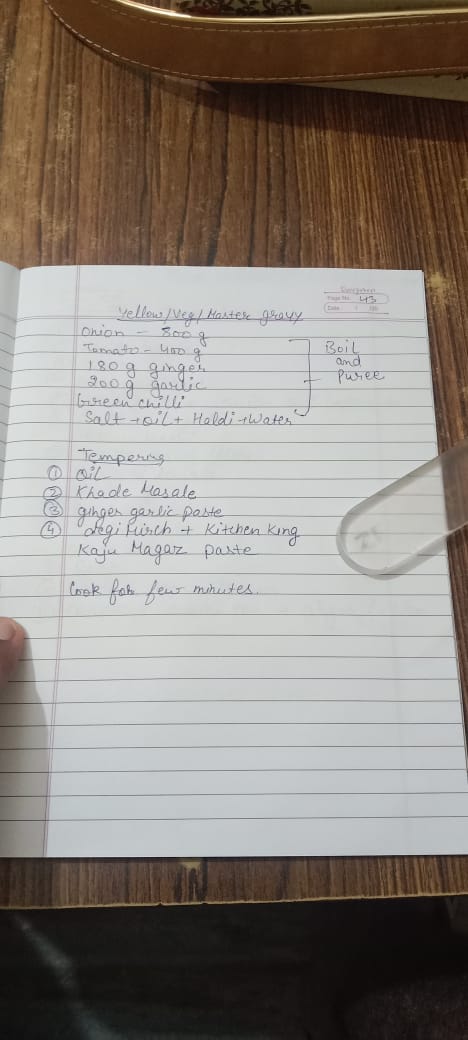 Evergreen
Page No. 43
Date: / /20
Yellow/Veg/Master gravy
Onion - 800 g
Tomato - 400 g
180 g ginger
200 g garlic
Green chilli
Salt + oil + Haldi + Water
Boil
and
Puree
Tempering
① Oil
② Khade Masale
③ ginger garlic paste
④ degi Mirch + Kitchen King
Kaju Magaz paste
Cook for few minutes.